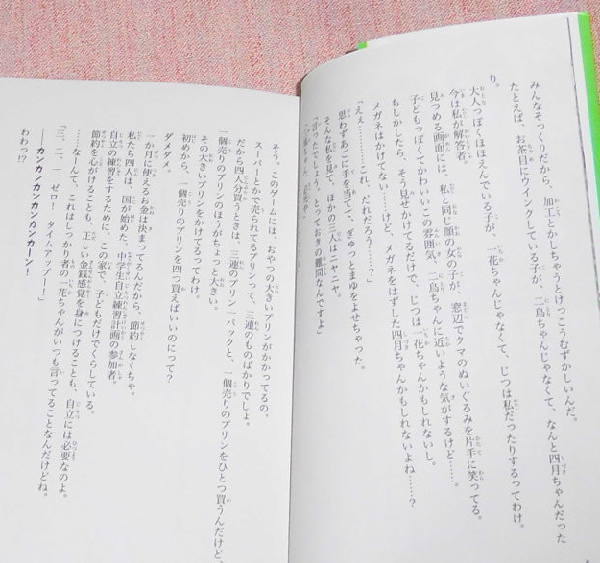 みんなそっくりだから、加工とかしちゃうとけっこうむずかしいんだ。
たとえば、お茶目にウインクしている子が、二鳥ちゃんじゃなくて、なんと四月ちゃんだった
り。
大人っぽくほほえんでいる子が、一花ちゃんじゃなくて、じつは私だったりするってわけ。
今は私が解答者。
見つめる画面には、私と同じ顔の女の子が、窓辺でクマのぬいぐるみを片手に笑ってる。
子どもっぽくてかわいいこの雰囲気、二鳥ちゃんに近いような気がするけど……。
もしかしたら、そう見せかけてるだけで、じつは一花ちゃんかもしれないし。
メガネはかけてない……けど、メガネをはずした四月ちゃんかもしれないよね……？
「えぇ………これ、だれだろう……？」
思わずあごに手を当てて、ぎゅっとまゆをよせちゃった。
そんな私を見て、ほかの三人はニヤニヤ。
「言ったでしょう。とっておきの難問なんですよ」
そう。このゲームには、おやつの大きいプリンがかかってるの。
スーパーとかで売られてるプリンって、三連のものばかりでしょ。
だから四人分買うときは、三連のプリン一パックと、一個売りのプリンをひとつ買うんだけど、
一個売りのプリンのほうがちょっと大きい。
その大きいプリンをかけてるってわけ。
初めから、一個売りのプリンを四つ買えばいいのにって？
ダメダメ。
一か月に使えるお金は決まってるんだから、節約しなくちゃ。
私たち四人は、国が始めた、中学生自立練習計画の参加者。
自立の練習をするために、この家で、子どもだけでくらしている。
節約を心がけることも、正しい金銭感覚を身につけることも、自立には必要なのよ。
……なーんて、これはしっかり者の一花ちゃんがいつも言ってることなんだけどね。
「三、二、一、ゼロー！　タイムアップー！」
――カンカンカンカンカンカーン！
わわっ!?